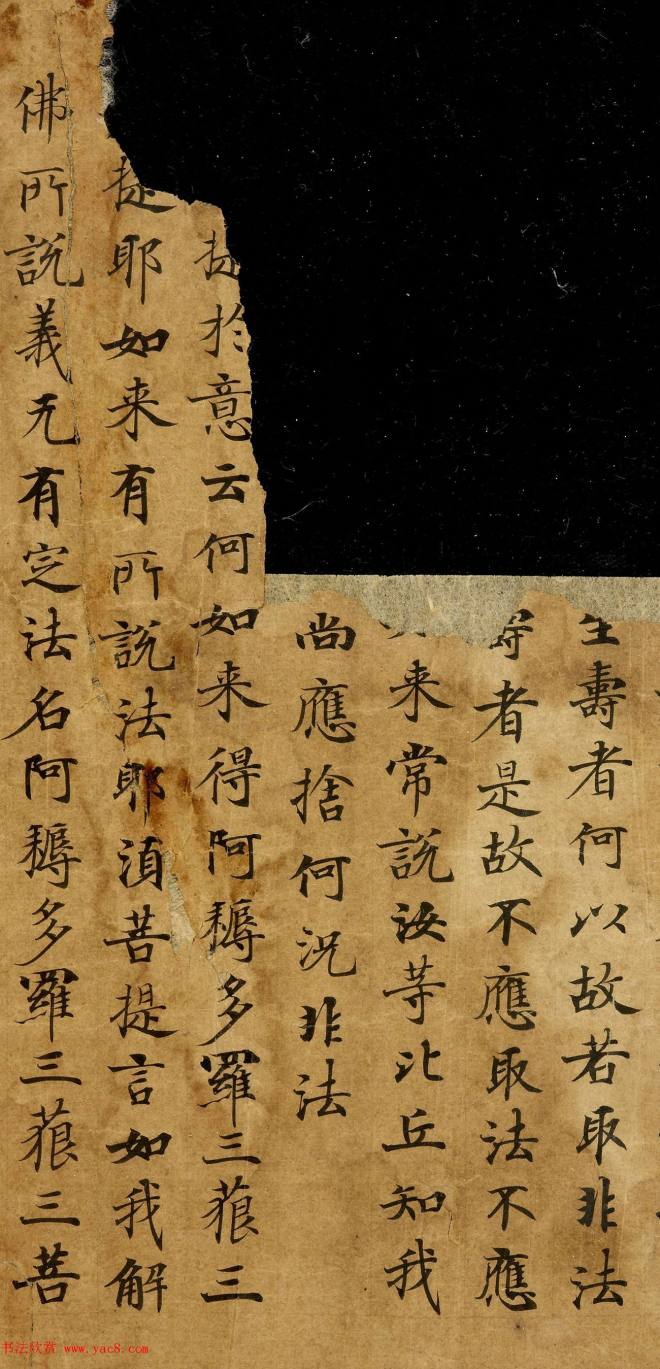 壽者何以故若取非法
者是故不應取法不應
来常說汝等比丘知我
尚應捨何況非法
提於意云何如来得阿耨多羅三藐三
提耶如来有所說法耶湏菩提言如我解
佛所說義无有定法名阿耨多羅三藐三菩
书法欣赏 www.yac8.com